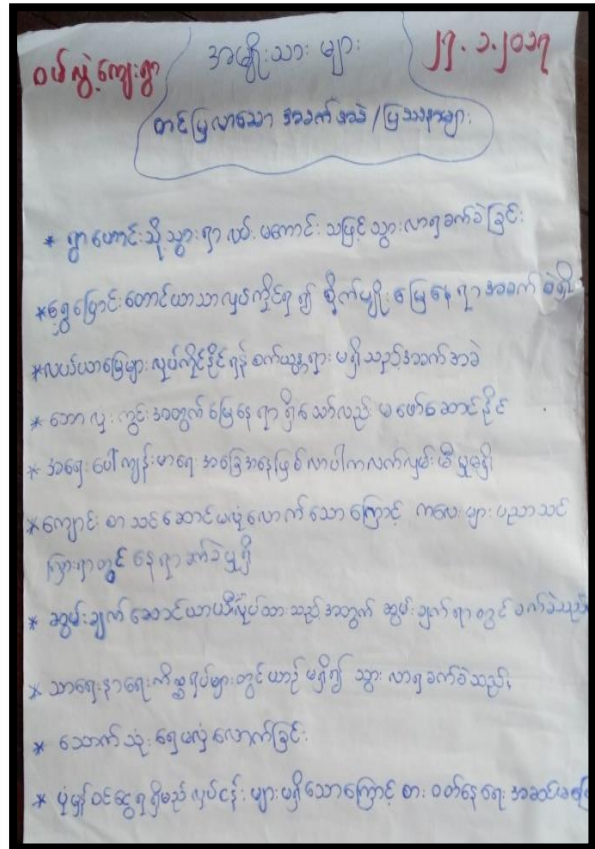 ဝယ်လွဲ့ကျေးရွာ
အမျိုးသား များ
၂၇.၁.၂၀၁၇
တင်ပြလာသော အခက်အခဲ/ပြဿနာများ
* ရွာဟောင်းသို့သွားရာ လမ်းမကောင်းသဖြင့်သွားလာရခက်ခဲခြင်း
*ရွှေ့ပြောင်းတောင်ယာသာလုပ်ကိုင်ရ၍ စိုက်ပျိုးမြေနေရာအခက်ခဲရှိ
*လယ်ယာမြေများလုပ်ကိုင်နိုင်ရန် စက်ယန္တရားမရှိသည့်အခက်အခဲ
* ဘောလုံးကွင်းအတွက်မြေနေရာရှိသော်လည်း မဖော်ဆောင်နိုင်
* အရေးပေါ်ကျန်းမာရေးအခြေအနေဖြစ်လာပါကလက်လှမ်းမီမှုမရှိ
*ကျောင်းစာသင်ဆောင်မလုံလောက်သောကြောင့် ကလေးများပညာသင်
ကြားရာတွင်နေရာခက်ခဲမှုရှိ
* ဆွမ်းချက်ဆောင်ယာယီလုပ်ထားသည့်အတွက် ဆွမ်းချက်ရာတွင်ခက်ခဲသည်
* သာရေးနာရေးကိစ္စရပ်များတွင်ယာဉ်မရှိ၍ သွားလာရခက်ခဲသည်
* သောက်သုံးရေမလုံလောက်ခြင်း
* ပုံမှန်ဝင်ငွေရရှိမည့်လုပ်ငန်းများမရှိသောကြောင့်စားဝတ်နေရေး